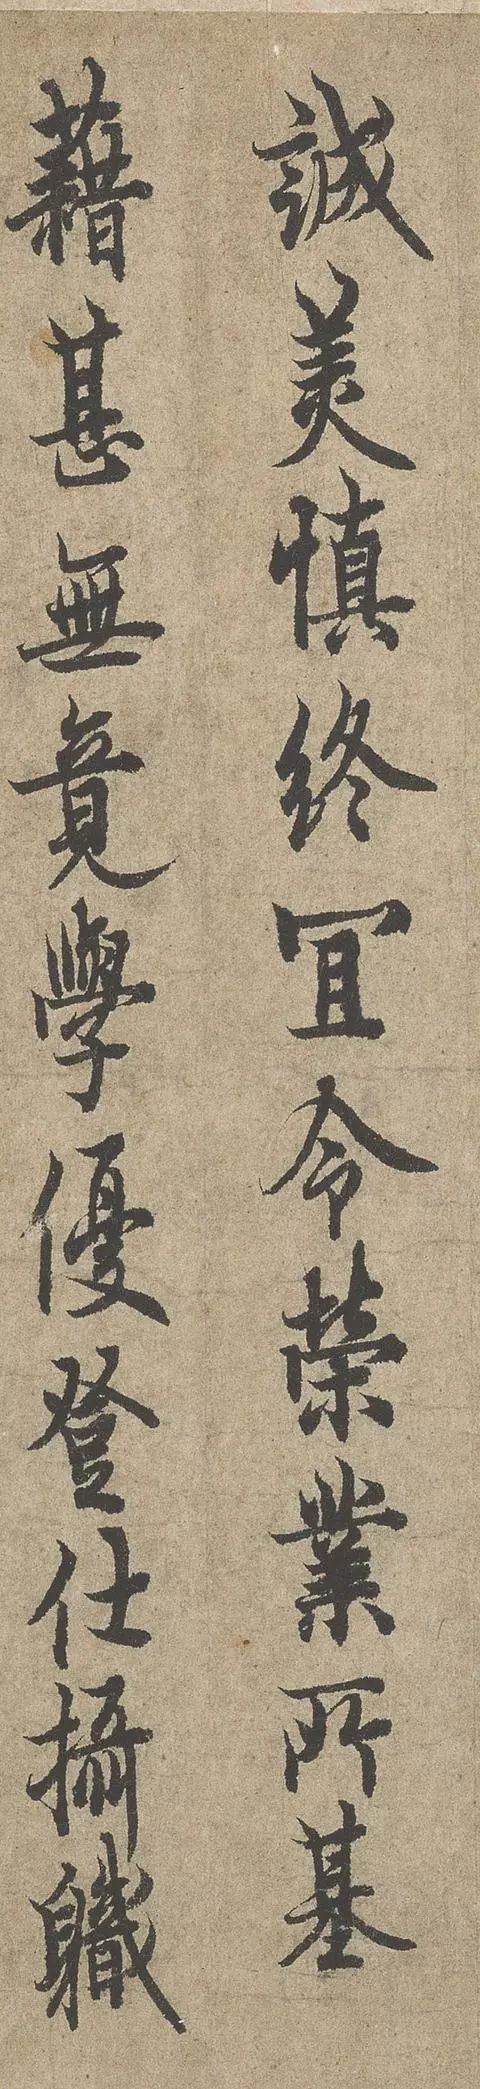 誠美慎終冝令榮業所基
藉甚無竟學優登仕攝職